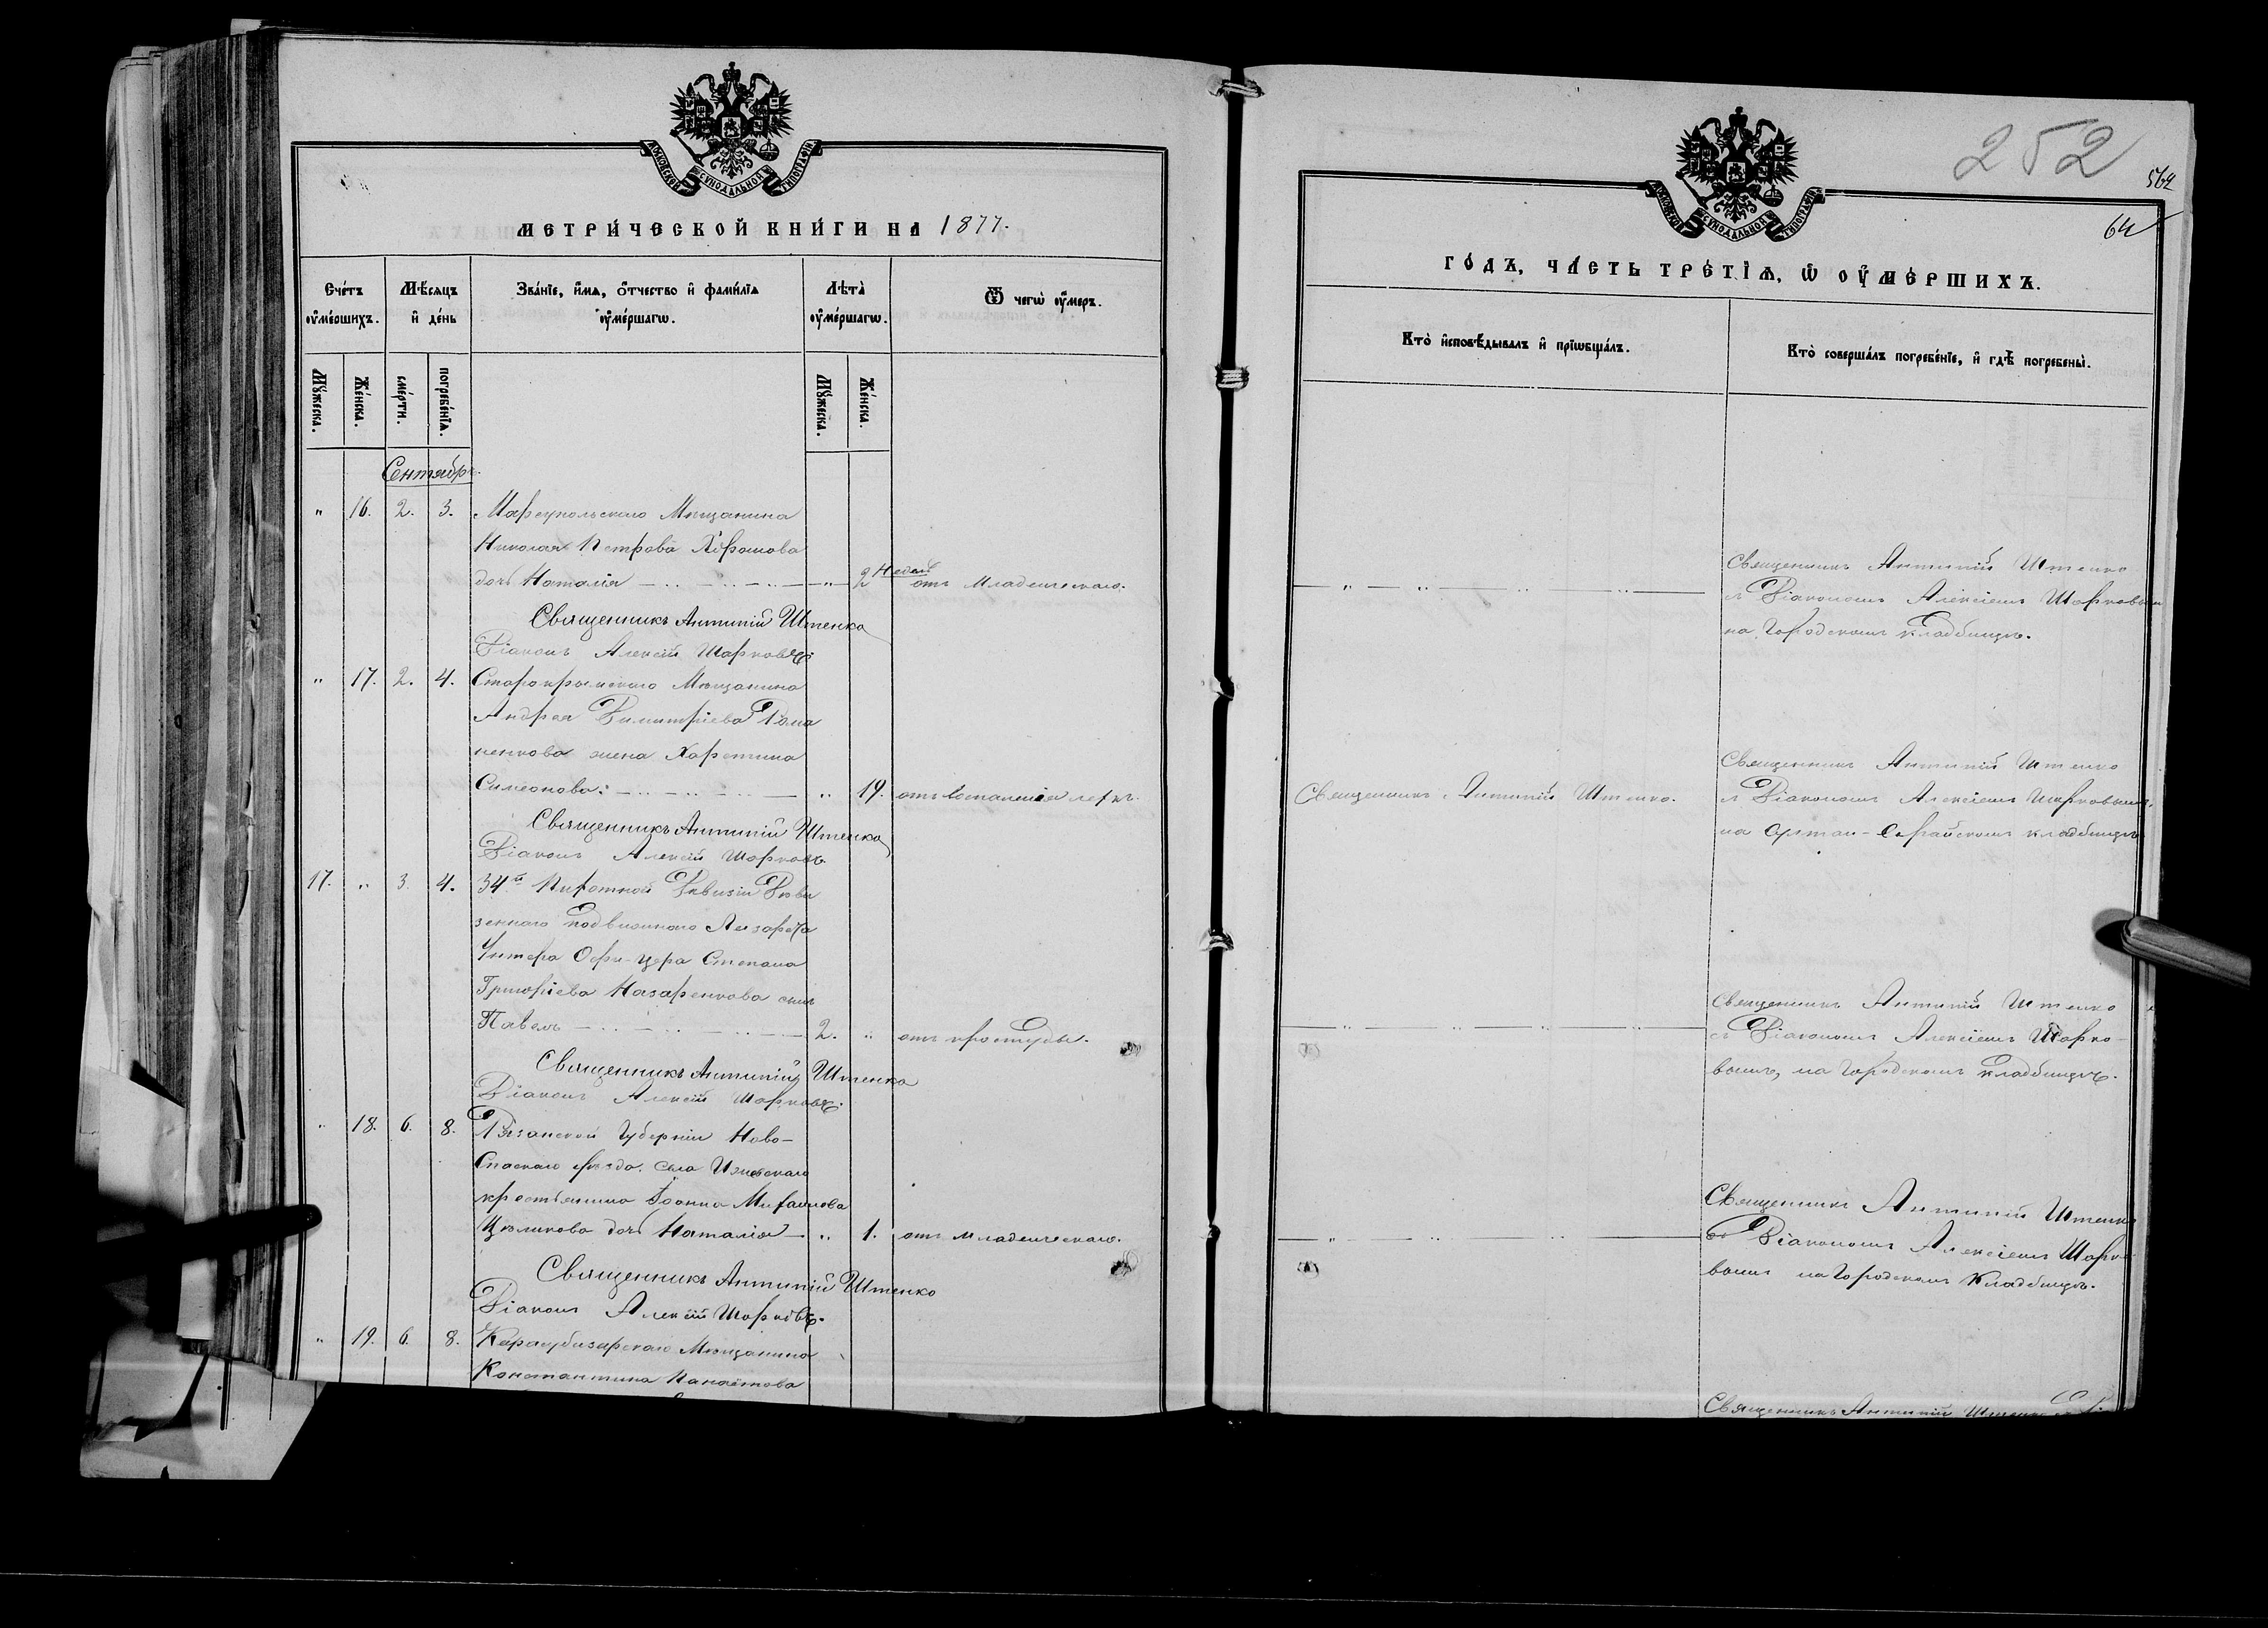 МОСКОВСКОЙ СѴНОДАЛЬНОЙ ТИПОГРАФІИ
МЕТРИ́ЧЕСКОЙ КНИ́ГИ НА 1877.
Сче́тъ ᲂумершихъ.
Мѣ́сяцъ и҆ де́нь
Зва́нїе, и҆́мѧ, ѻ҆́тчество и҆ фами́лїѧ ᲂуме́ршагѡ.
Лѣта̀ ᲂуме́ршагѡ.
Ѿ чегѡ̀ ᲂу́меръ.
Мꙋ́жеска.
Же́нска.
сме́рти.
погребе́нїѧ.
Мꙋ́жеска.
Же́нска.
Сентябрь.
" 16. 2. 3. Мариупольскаго Мѣщанина
Николая Петрова
дочь Наталія — " — 2 Недѣль отъ младенческаго.
Священникъ Антипій Штенко
Діаконъ Алексій Шарковъ.
" 17. 2. 4. Старокрымскаго Мѣщанина
Андрея Димитріева Рома
ненкова жена Харетина
Симеонова: — " 19. отъ воспаленія легкъ.
Священникъ Антипій Штенко
Діаконъ Алексій Шарковъ.
17. " 3. 4. 34й Пихотной Дивизіи Диви
зеннаго подвижнаго Лазарета
Унтера Офи-цера Степана
Григоріева Назаренкова сынъ
Павелъ — 2. " отъ простуды.
Священникъ Антипій Штенко
Діаконъ Алексій Шарковъ.
" 18. 6. 8. Рязанской Губерніи Ново-
Спаскаго уѣзда. села Ижевскаго
крестьянина Іоанна Михаилова
дочь Наталія — " 1. отъ младенческаго.
Священникъ Антипій Штенко
Діаконъ Алексій Шарковъ.
" 19. 6. 8. Карасубазарскаго Мѣщанина
Константина
252
564
64
МОСКОВСКОЙ СѴНОДАЛЬНОЙ ТИПОГРАФІИ
ГО́ДЪ, ЧА́СТЬ ТРЕ́ТЇѦ, Ѡ ᲂУМЕ́РШИХЪ.
Кто̀ и҆сповѣ́дывалъ и҆ прїѡбща́лъ.
Кто̀ соверша́лъ погребе́нїе, и҆ гдѣ̀ погребены̀.
Священникъ Антипій Штенко
съ Діакономъ Алексіемъ Шарковым
на Городскомъ кладбищѣ.
Священникъ Антипій Штенко.
Священникъ Антипій Штенко
съ Діакономъ Алексіемъ Шарковымъ,
на Султан-Сарайскомъ кладбищѣ
Священникъ Антипій Штенко
съ Діакономъ Алексіемъ Шарко-
вымъ, на Городскомъ кладбищѣ.
Священникъ Антипій Штенко
съ Діакономъ Алексіемъ Шарко-
вымъ на Городскомъ Кладбищѣ.
Священникъ Антипій Штенко